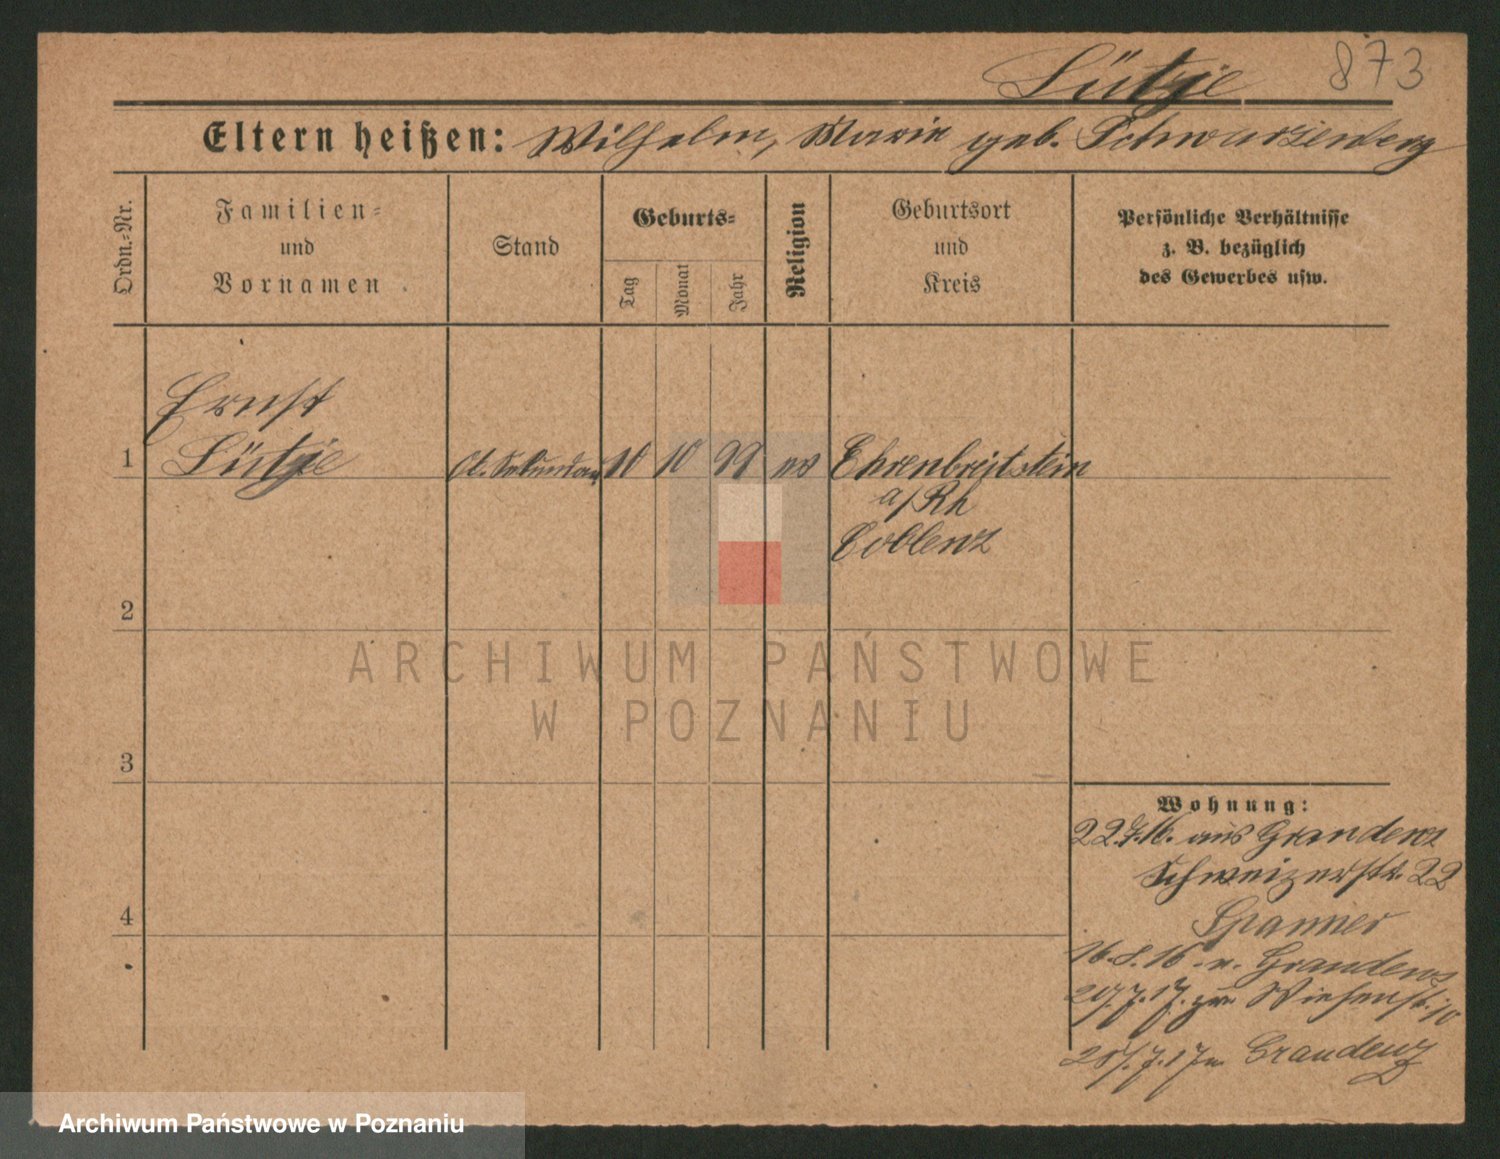 Lütje 873
Eltern heißen: Wilhelm, Marie geb. Schwarzenberg
Ordn.-Nr.
Familien-
und
Vornamen
Stand
Geburts-
Tag
Monat
Jahr
Religion
Geburtsort
und
Kreis
Persönliche Verhältnisse
z. B. bezüglich
des Gewerbes usw.
Ernst
1 Lütje 10 10 99 ev Ehrenbreitstein
a/Rh
Coblenz
2
ARCHIWUM PAŃSTWOWE
W POZNANIU
3
Wohnung:
22.7.16. aus Graudenz
Schweizerstr. 22
4
16.8.16. n. Graudenz
7.17. Wiesenstr. 10
7.17 n Graudenz
Archiwum Państwowe w Poznaniu